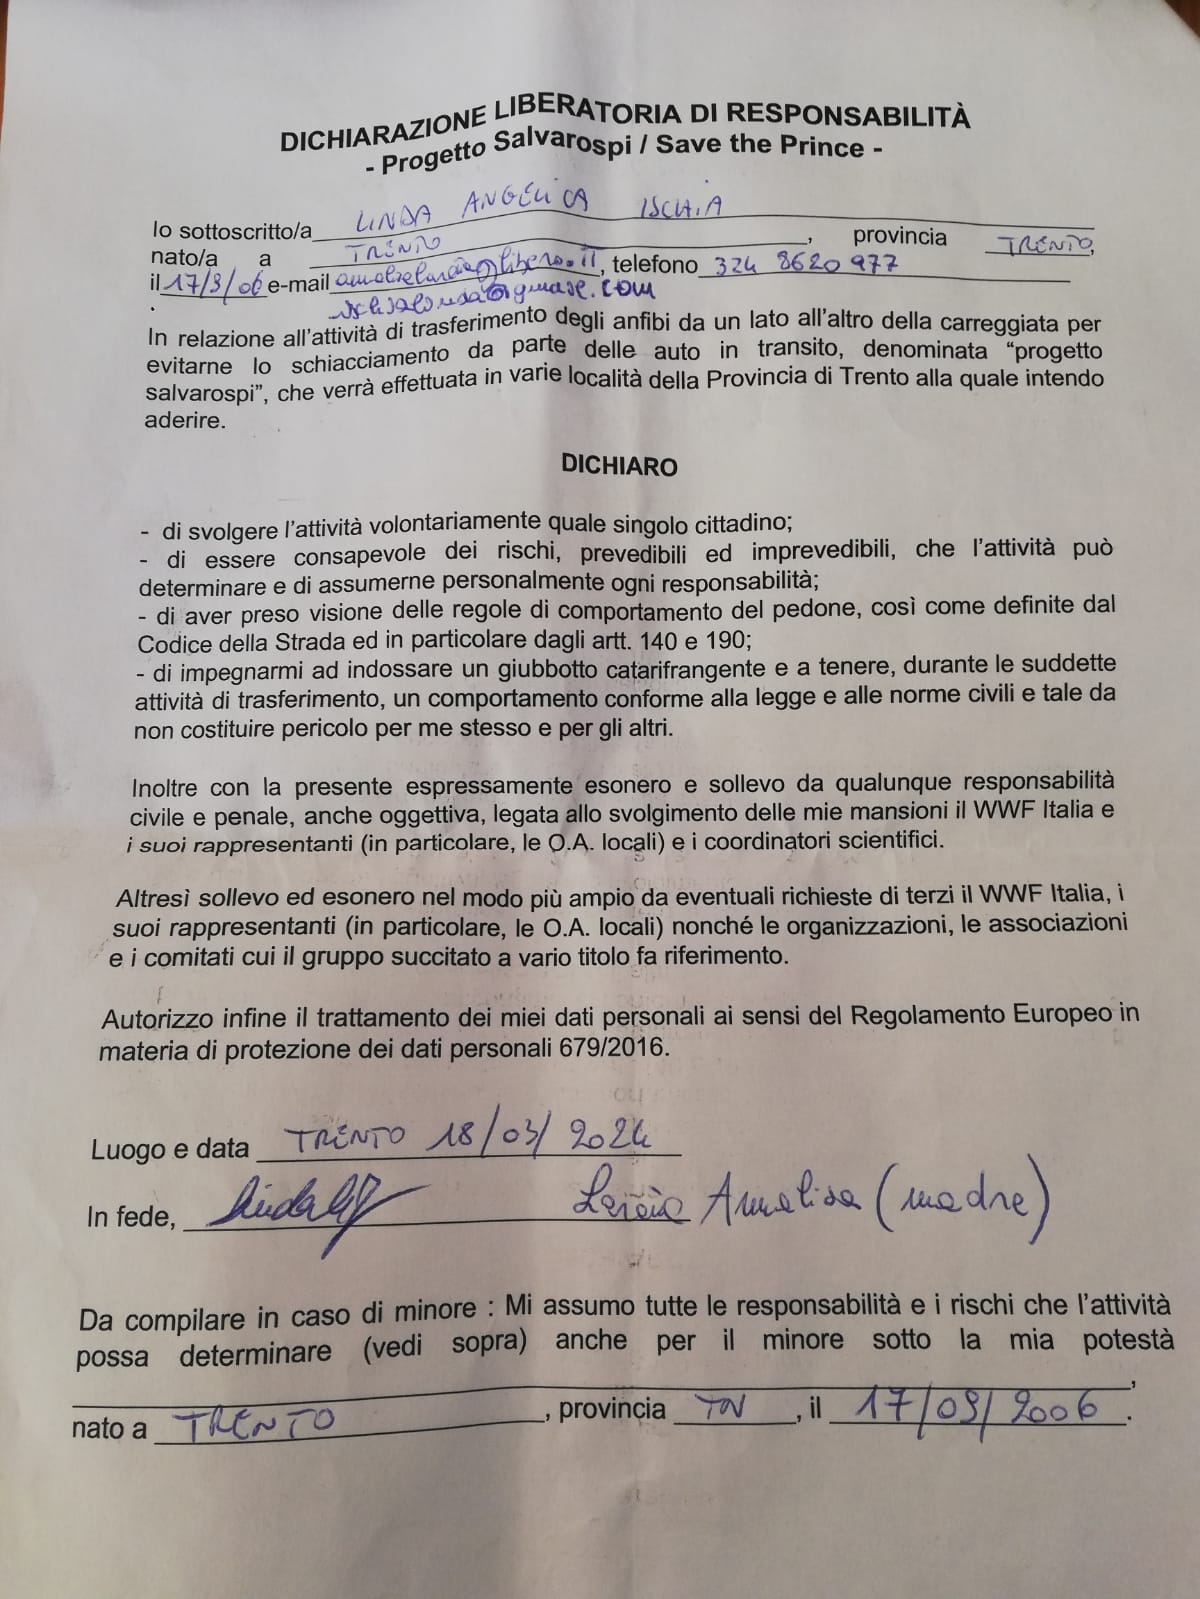 DICHIARAZIONE LIBERATORIA DI RESPONSABILITÀ
- Progetto Salvarospi / Save the Prince -
Io sottoscritto/a LINDA ANGELICA ISCHIA
nato/a a TRENTO, provincia TRENTO,
il 17/9/06 e-mail @libero.it, telefono 324 8620977
.com
In relazione all'attività di trasferimento degli anfibi da un lato all'altro della carreggiata per
evitarne lo schiacciamento da parte delle auto in transito, denominata “progetto
salvarospi”, che verrà effettuata in varie località della Provincia di Trento alla quale intendo
aderire.
DICHIARO
- di svolgere l'attività volontariamente quale singolo cittadino;
- di essere consapevole dei rischi, prevedibili ed imprevedibili, che l'attività può
determinare e di assumerne personalmente ogni responsabilità;
- di aver preso visione delle regole di comportamento del pedone, così come definite dal
Codice della Strada ed in particolare dagli artt. 140 e 190;
- di impegnarmi ad indossare un giubbotto catarifrangente e a tenere, durante le suddette
attività di trasferimento, un comportamento conforme alla legge e alle norme civili e tale da
non costituire pericolo per me stesso e per gli altri.
Inoltre con la presente espressamente esonero e sollevo da qualunque responsabilità
civile e penale, anche oggettiva, legata allo svolgimento delle mie mansioni il WWF Italia e
i suoi rappresentanti (in particolare, le O.A. locali) e i coordinatori scientifici.
Altresì sollevo ed esonero nel modo più ampio da eventuali richieste di terzi il WWF Italia, i
suoi rappresentanti (in particolare, le O.A. locali) nonché le organizzazioni, le associazioni
e i comitati cui il gruppo succitato a vario titolo fa riferimento.
Autorizzo infine il trattamento dei miei dati personali ai sensi del Regolamento Europeo in
materia di protezione dei dati personali 679/2016.
Luogo e data TRENTO 18/03/2024
In fede, Annalisa (madre)
Da compilare in caso di minore : Mi assumo tutte le responsabilità e i rischi che l'attività
possa determinare (vedi sopra) anche per il minore sotto la mia potestà
,
nato a TRENTO, provincia TN, il 17/09/2006.